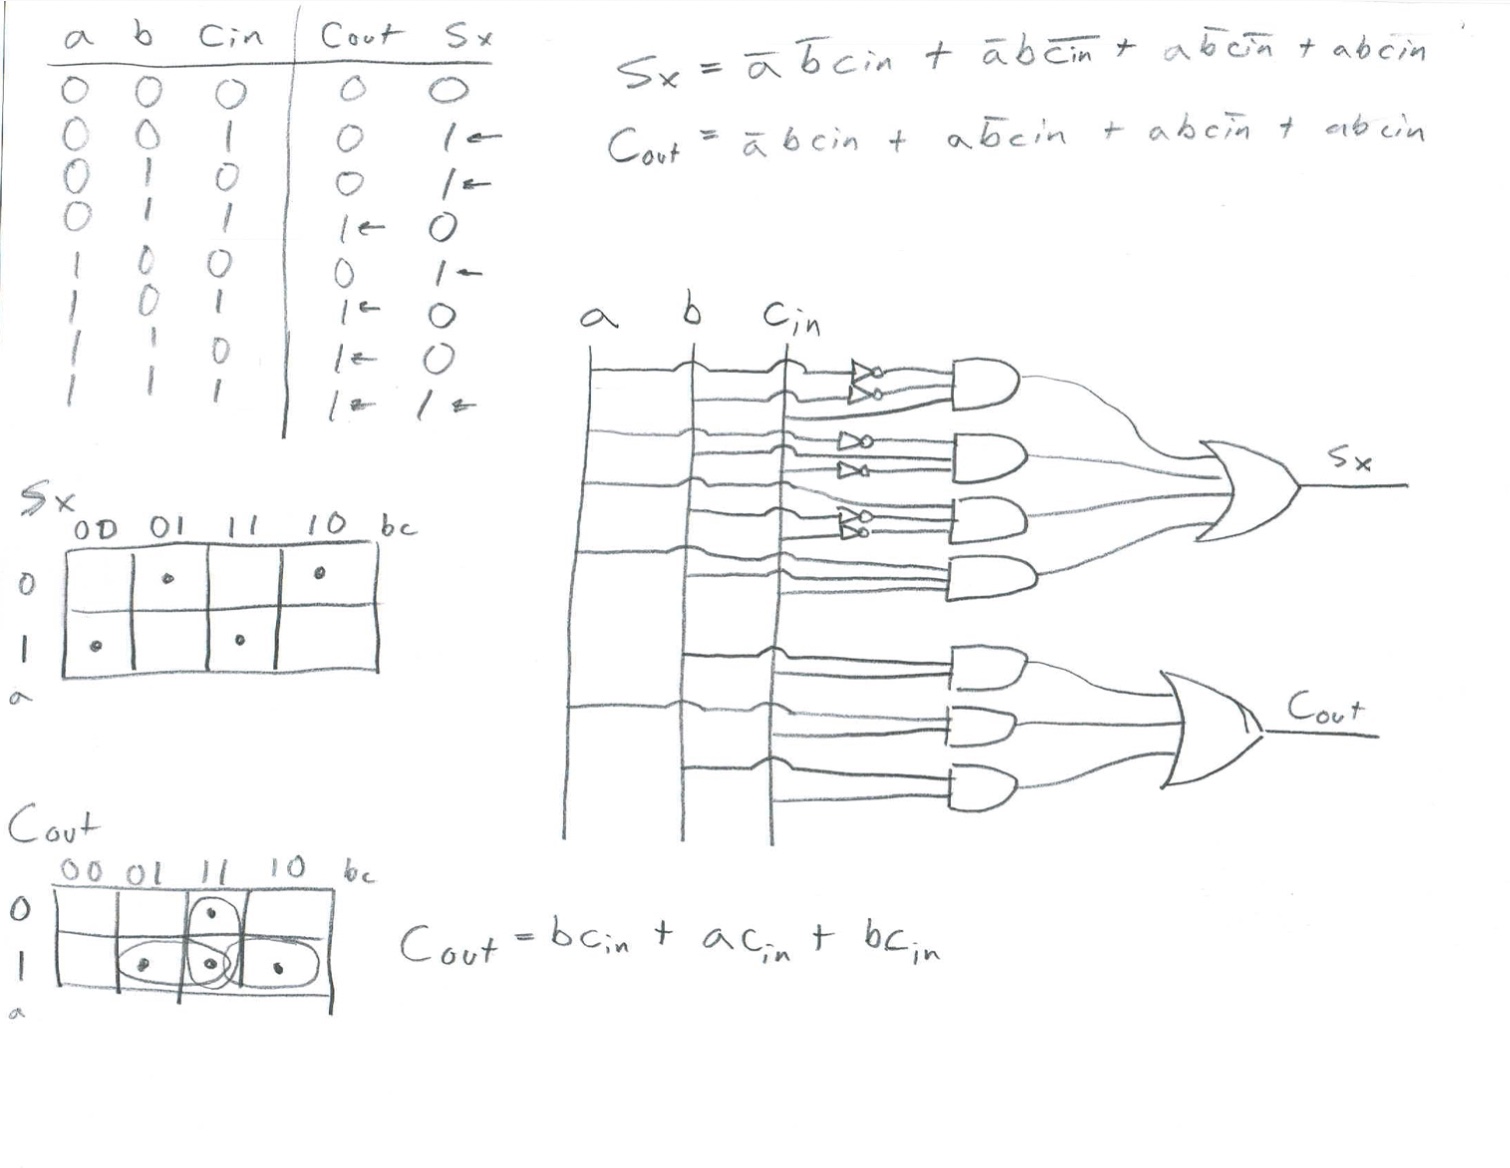 a b Cin Cout Sx
0 0 0 0 0
0 0 1 0 1←
0 1 0 0 1←
0 1 1 1← 0
1 0 0 0 1←
1 0 1 1← 0
1 1 0 1← 0
1 1 1 1← 1←
Sx = a̅ b̅ cin + a̅ b c̅i̅n̅ + a b̅ c̅i̅n̅ + abcin
Cout = a̅ b cin + a b̅ cin + abc̅i̅n̅ + abcin
a b Cin
Sx
Cout
Sx
00 01 11 10 bc
0
1
a
Cout
00 01 11 10 bc
0
1
a
Cout = bcin + acin + bcin